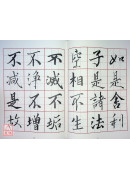 如是舍利
子是諸法
空相不生
不滅不垢
不淨不增
不減是故